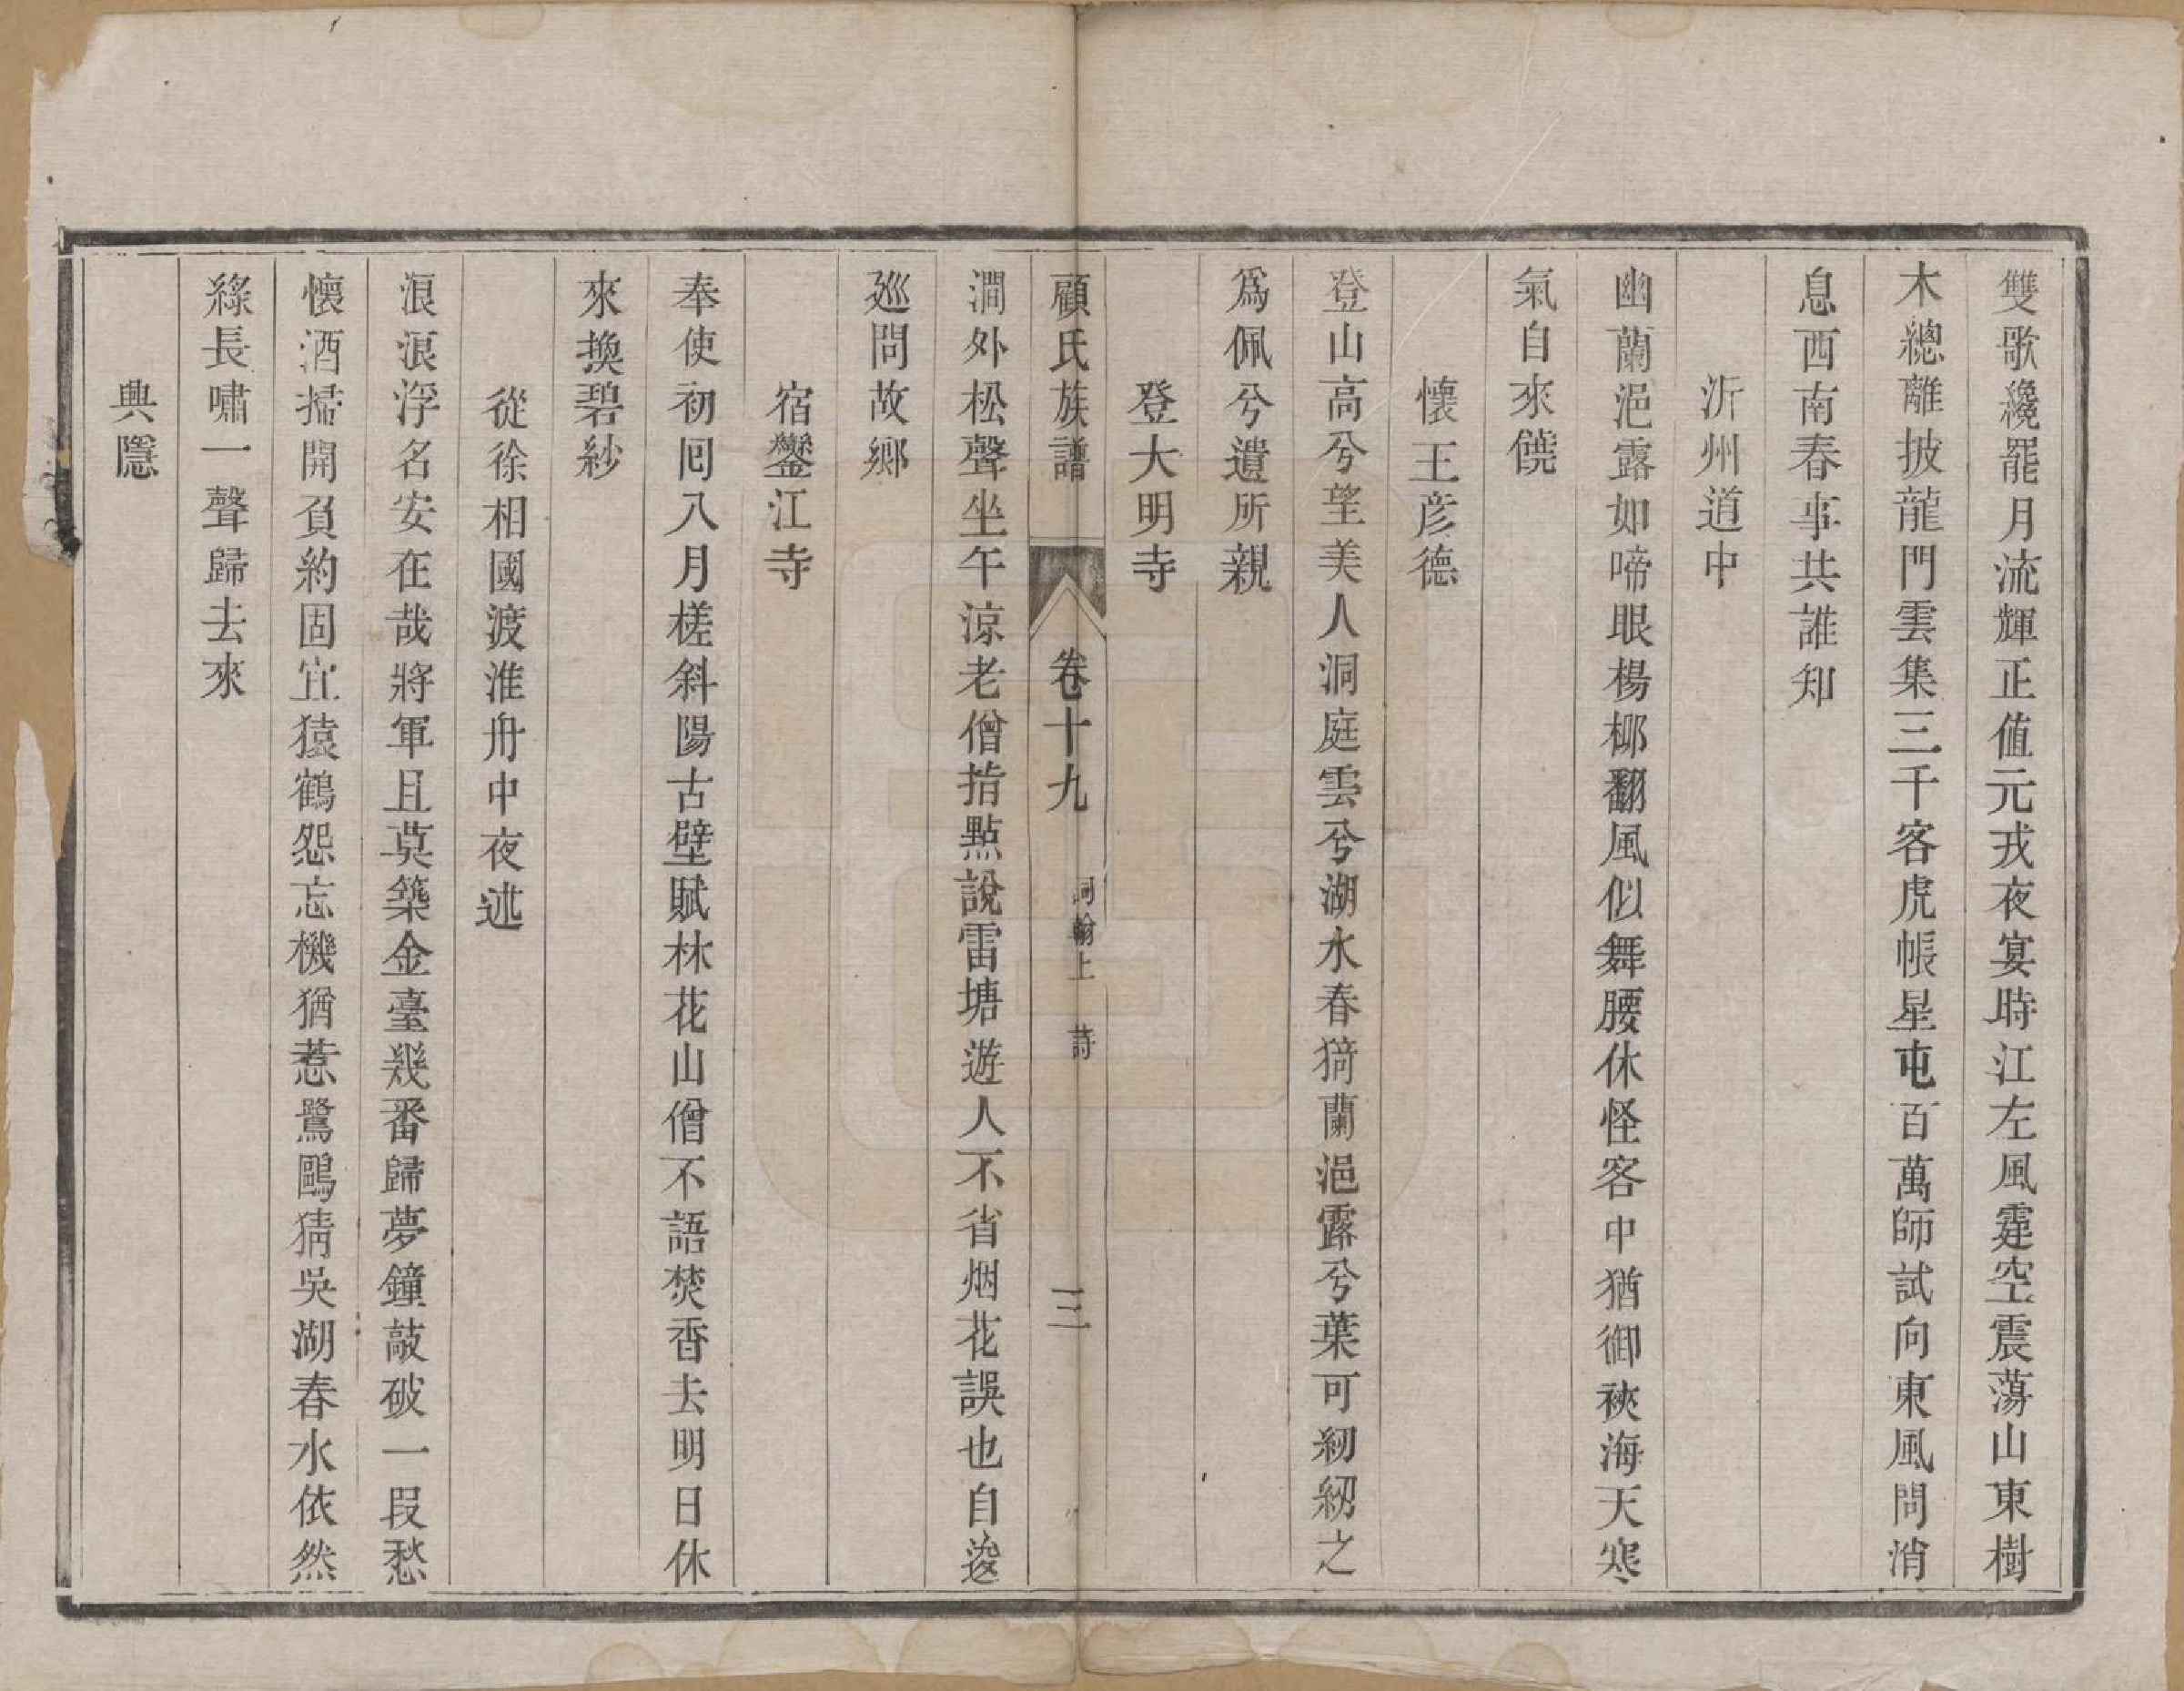 雙歌纔罷月流輝正值元戎夜宴時江左風霆空震蕩山東樹
木總離披龍門雲集三千客虎帳星屯百萬師試向東風問消
息西南春事共誰知
沂州道中
幽蘭浥露如啼眼楊柳翻風似舞腰休怪客中猶御裌海天寒
氣自來饒
懷王彦德
登山高兮望美人洞庭雲兮湖水春猗蘭浥露兮葉可紉紉之
爲佩兮遺所親
登大明寺
顧氏族譜 卷十九 詞翰上 詩 三
澗外松聲坐午涼老僧指點說雷塘遊人不省烟花誤也自逡
巡問故鄉
宿鑾江寺
奉使初囘八月槎斜陽古壁賦林花山僧不語焚香去明日休
來換碧紗
從徐相國渡淮舟中夜述
浪浪浮名安在哉將軍且莫築金臺幾番歸夢鐘敲破一段愁
懷酒掃開負約固宜猿鶴怨忘機猶惹鷺鷗猜吳湖春水依然
綠長嘯一聲歸去來
典隱